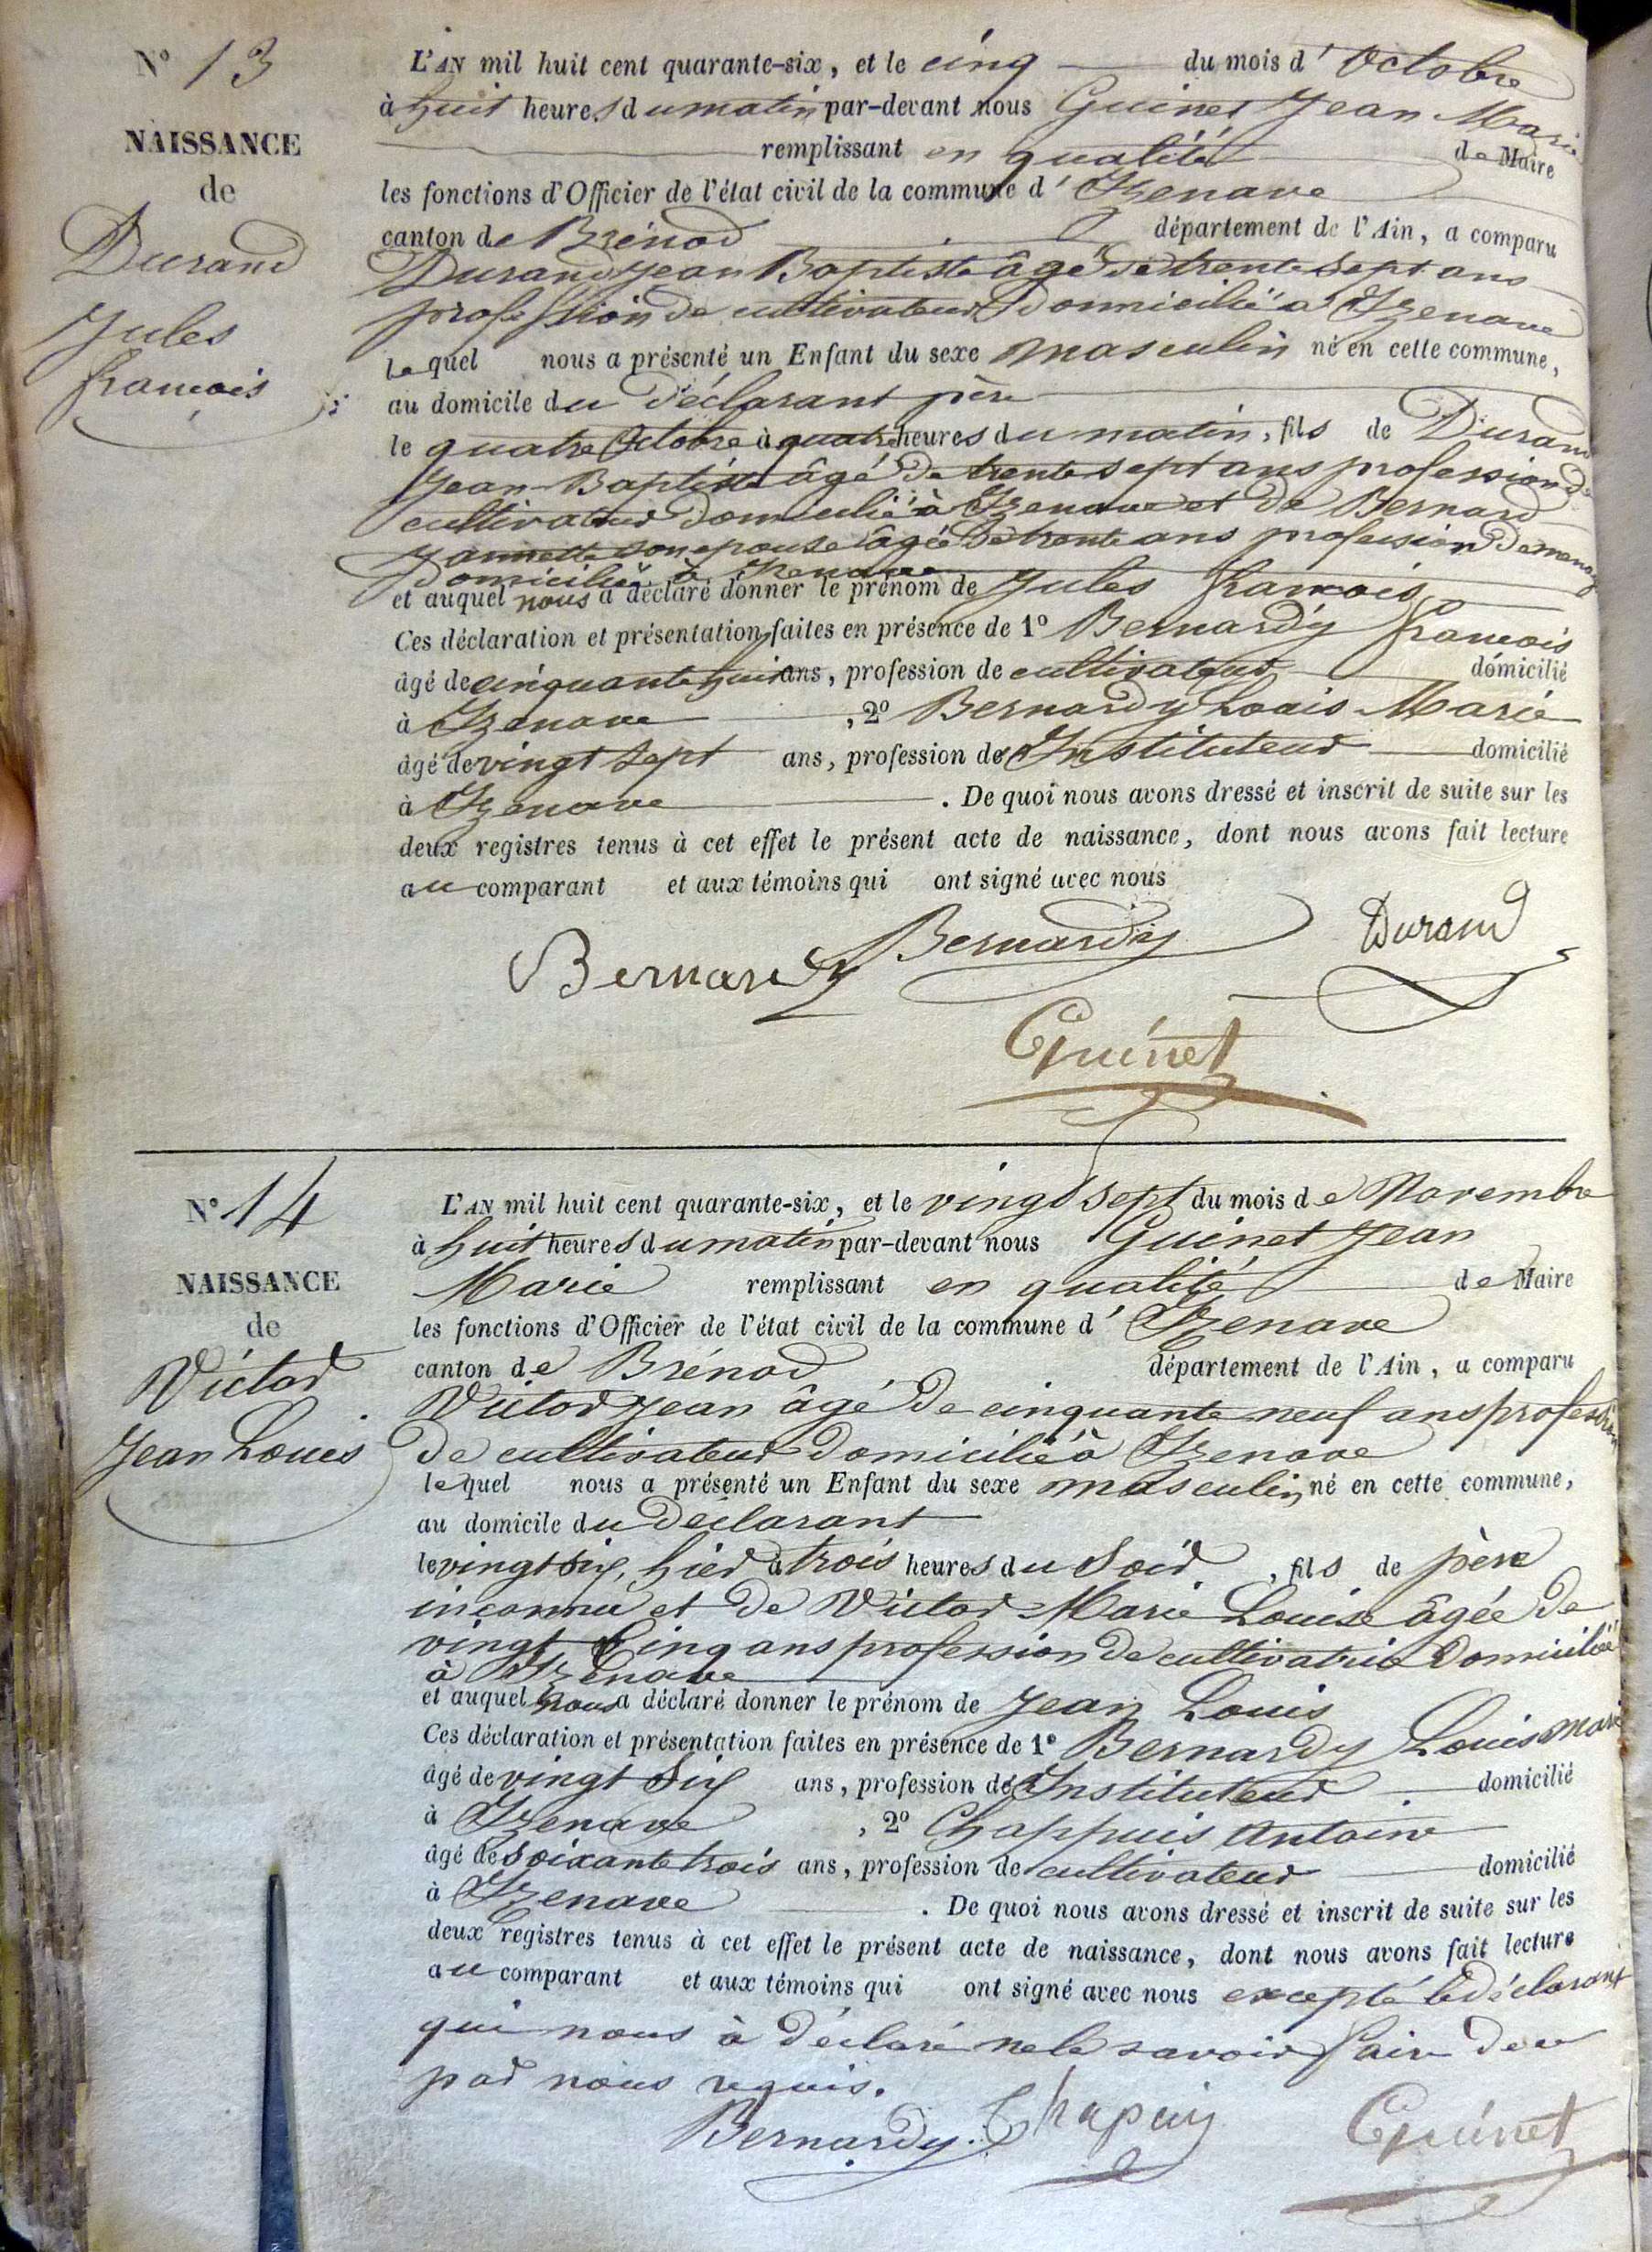 N° 13
NAISSANCE
de
Durand
Jules
francois
L'AN mil huit cent quarante-six, et le cinq du mois d' Octobre
à huit heures du matin par-devant nous Guinet Jean Marie
remplissant en qualité de Maire
les fonctions d'Officier de l'état civil de la commune d' Izenave
canton de Brénod département de l'Ain, a comparu
Durand Jean Baptiste âgé de trente sept ans
profession de cultivateur domicilié à Izenave
lequel nous a présenté un Enfant du sexe masculin né en cette commune,
au domicile du déclarant père
le quatre Octobre à quatre heures du matin, fils de Durand
Jean-Baptiste âgé de trente sept ans profession de
cultivateur domicilié à Izenave et de Bernard
Jannette son epouse âgée de trente ans profession de
domiciliée à Izenave
et auquel nous a déclaré donner le prénom de Jules francois
Ces déclaration et présentation faites en présence de 1° Bernardy francois
âgé de cinquante huit ans, profession de cultivateur domicilié
à Izenave, 2° Bernardy Louis Marie
âgé de vingt sept ans, profession de Instituteur domicilié
à Izenave. De quoi nous avons dressé et inscrit de suite sur les
deux registres tenus à cet effet le présent acte de naissance, dont nous avons fait lecture
au comparant et aux témoins qui ont signé avec nous
Bernardy Bernardy Durand
Guinet
N° 14
NAISSANCE
de
Victor
Jean Louis
L'AN mil huit cent quarante-six, et le vingt sept du mois de Novembre
à huit heures du matin par-devant nous Guinet Jean
Marie remplissant en qualité de Maire
les fonctions d'Officier de l'état civil de la commune d' Izenave
canton de Brénod département de l'Ain, a comparu
Victor Jean âgé de cinquante neuf ans profession
de cultivateur domicilié à Izenave
lequel nous a présenté un Enfant du sexe masculin né en cette commune,
au domicile du déclarant
le vingt six, hier à trois heures du Soir, fils de père
inconnu et de Victor Marie Louise âgée de
vingt Cinq ans profession de cultivatrice domiciliée
à Izenave
et auquel nous a déclaré donner le prénom de Jean Louis
Ces déclaration et présentation faites en présence de 1° Bernardy Louis Marie
âgé de vingt Six ans, profession de Instituteur domicilié
à Izenave, 2° Chappuis Antoine
âgé de Soixante trois ans, profession de cultivateur domicilié
à Izenave. De quoi nous avons dressé et inscrit de suite sur les
deux registres tenus à cet effet le présent acte de naissance, dont nous avons fait lecture
au comparant et aux témoins qui ont signé avec nous excepté le déclarant
qui nous à déclaré ne le savoir faire de ce
par nous requis.
Bernardy Chapuis Guinet